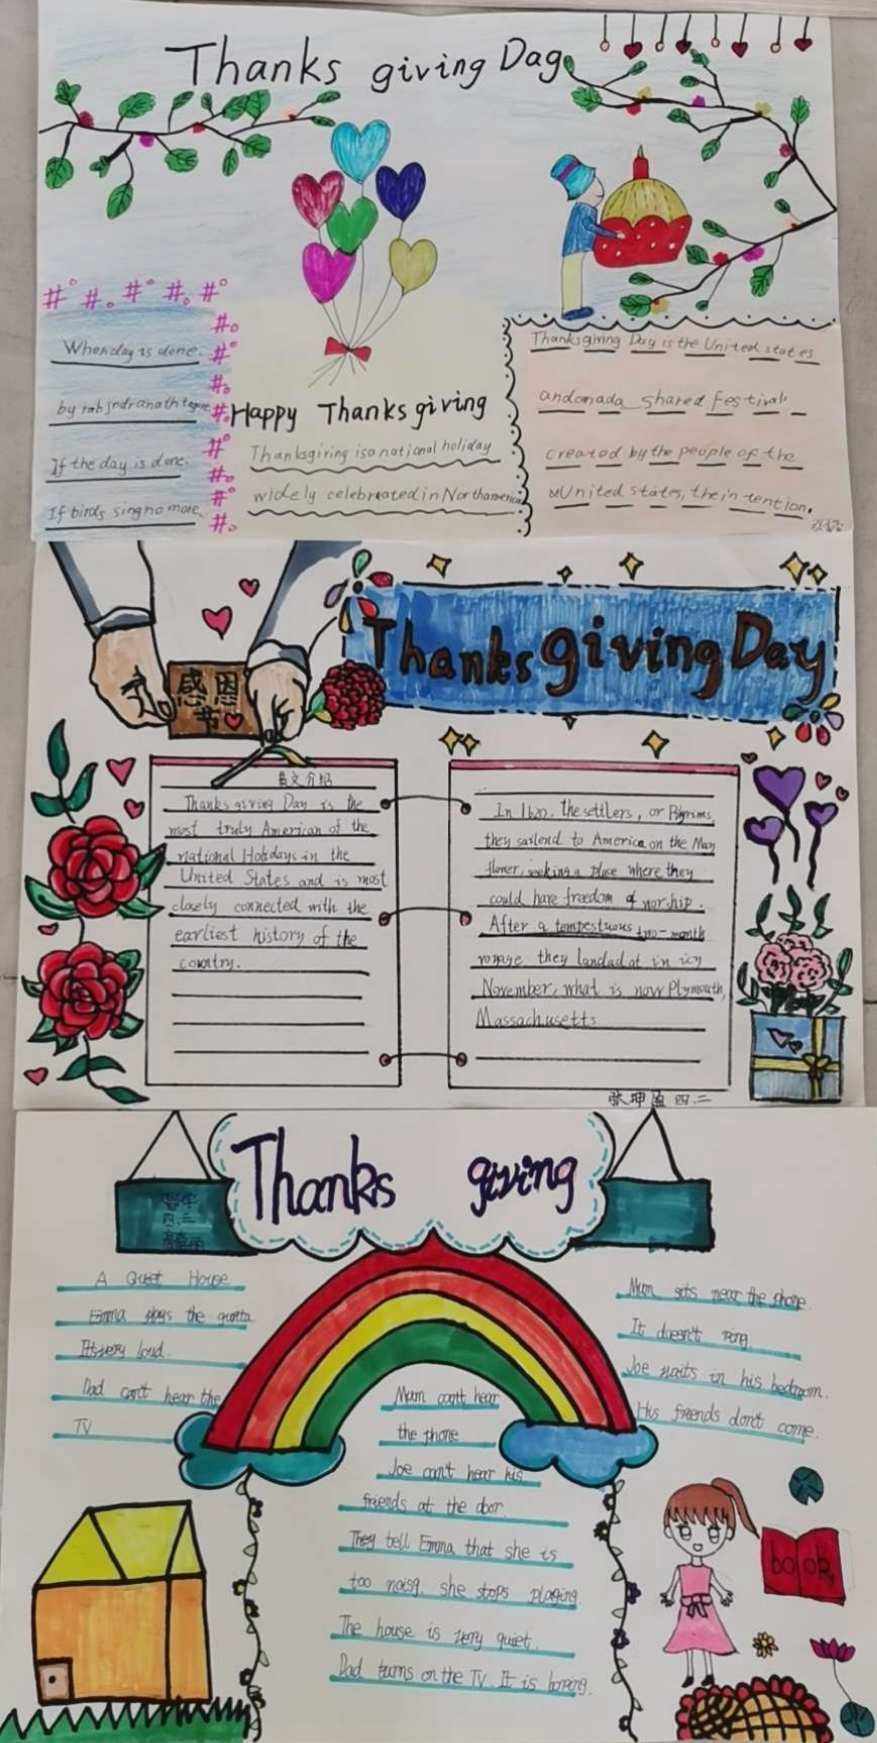 Thanks giving Day
When day is done.
by rabindranath tagore
If the day is done.
If birds sing no more.
Happy Thanks giving
Thanksgiving is a national holiday
widely celebreated in Northamerica
Thanksgiving Day is the United states
andcanada shared festival
created by the people of the
United states, the in tention.
Thanks giving Day
感恩
节
英文介绍
Thanks giving Day is the
most truly American of the
national Holidays in the
United States and is most
closely connected with the
earliest history of the
country.
In 1620. the settlers, or Pilgrims,
they sailend to America on the May
flower, seeking a place where they
could have freedom of worship.
After a tempestuous two-month
voyage they landed at in icy
November, what is now Plymouth,
Massachusetts
张坤盈 四.二
Thanks giving
四.二
A Quiet House
Emma plays the guitar
It's very loud.
Dad can't hear the
TV
Mum can't hear
the phone
Joe can't hear his
friends at the door.
They tell Emma that she is
too noisy. she stops playing
The house is very quiet.
Dad turns on the TV. It is boring.
Mum sits near the phone.
It doesn't ring
Joe waits in his bedroom.
His friends don't come.
book